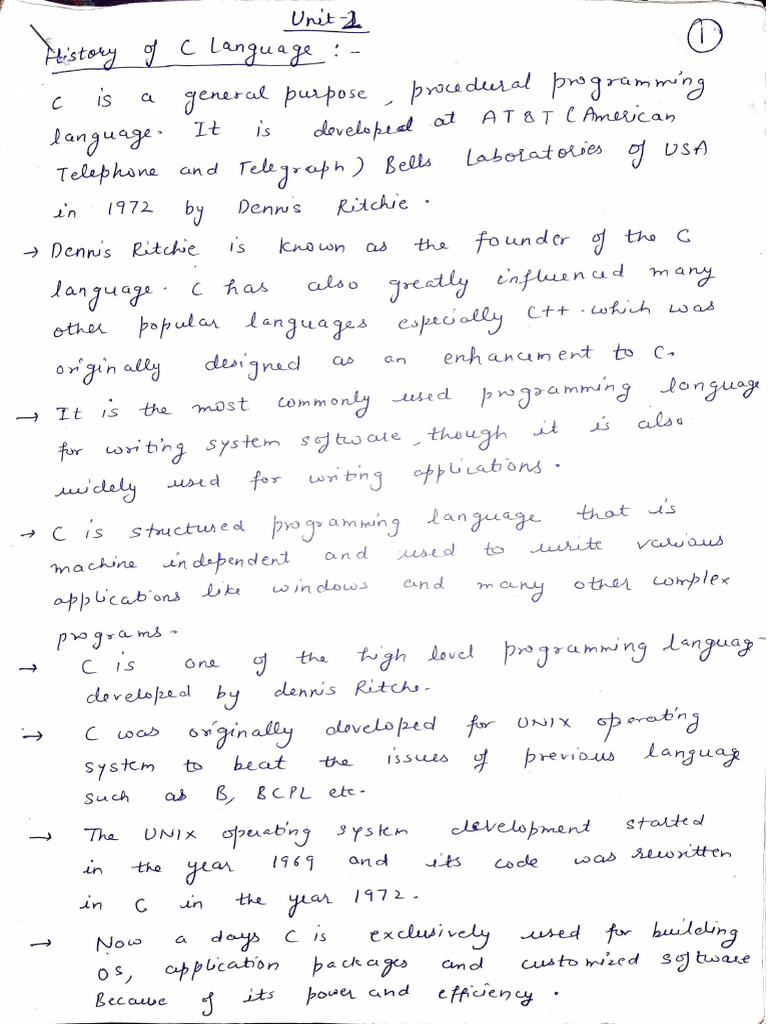 Unit-1
1
History of C Language :-
C is a general purpose, procedural programming
language. It is developed at AT&T (American
Telephone and Telegraph) Bells Laboratories of USA
in 1972 by Dennis Ritchie.
→ Dennis Ritchie is known as the founder of the C
language. C has also greatly influenced many
other popular languages especially C++. which was
originally designed as an enhancement to C.
→ It is the most commonly used programming language
for writing system software, though it is also
widely used for writing applications.
→ C is structured programming language that is
machine independent and used to write various
applications like windows and many other complex
programs.
→ C is one of the high level programming languag-
developed by dennis Ritche.
→ C was originally developed for UNIX operating
system to beat the issues of previous language
such as B, BCPL etc.
→ The UNIX operating system development started
in the year 1969 and its code was rewritten
in C in the year 1972.
→ Now a days C is exclusively used for building
OS, application packages and customized software
Because of its power and efficiency.